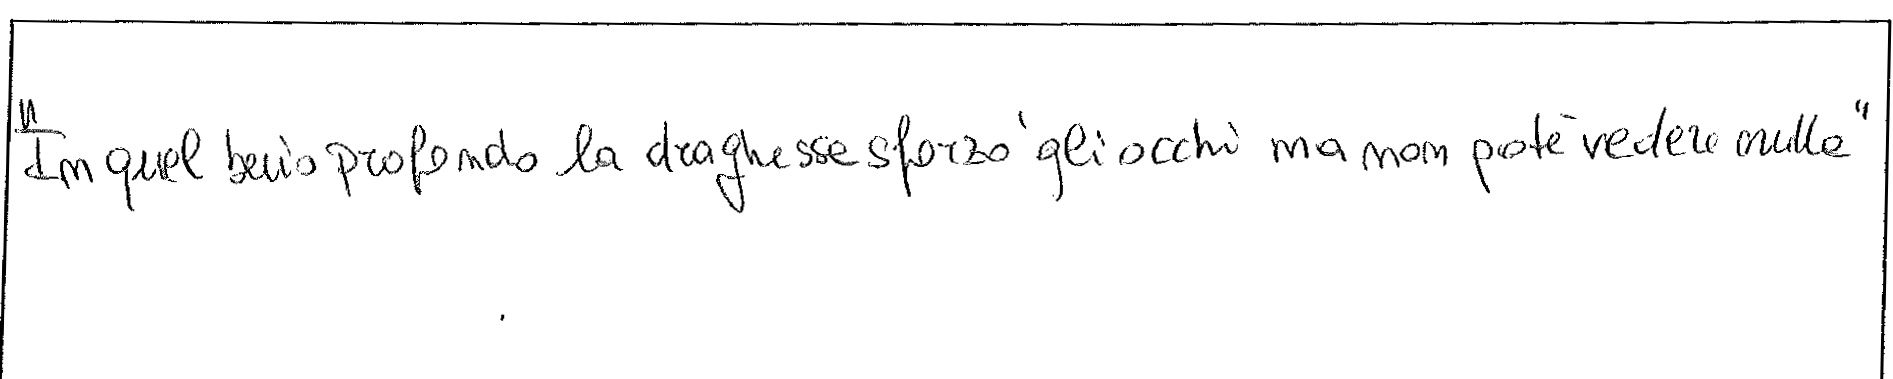 "In quel buio profondo la draghesse sforzò gli occhi ma non potè vedere nulla"